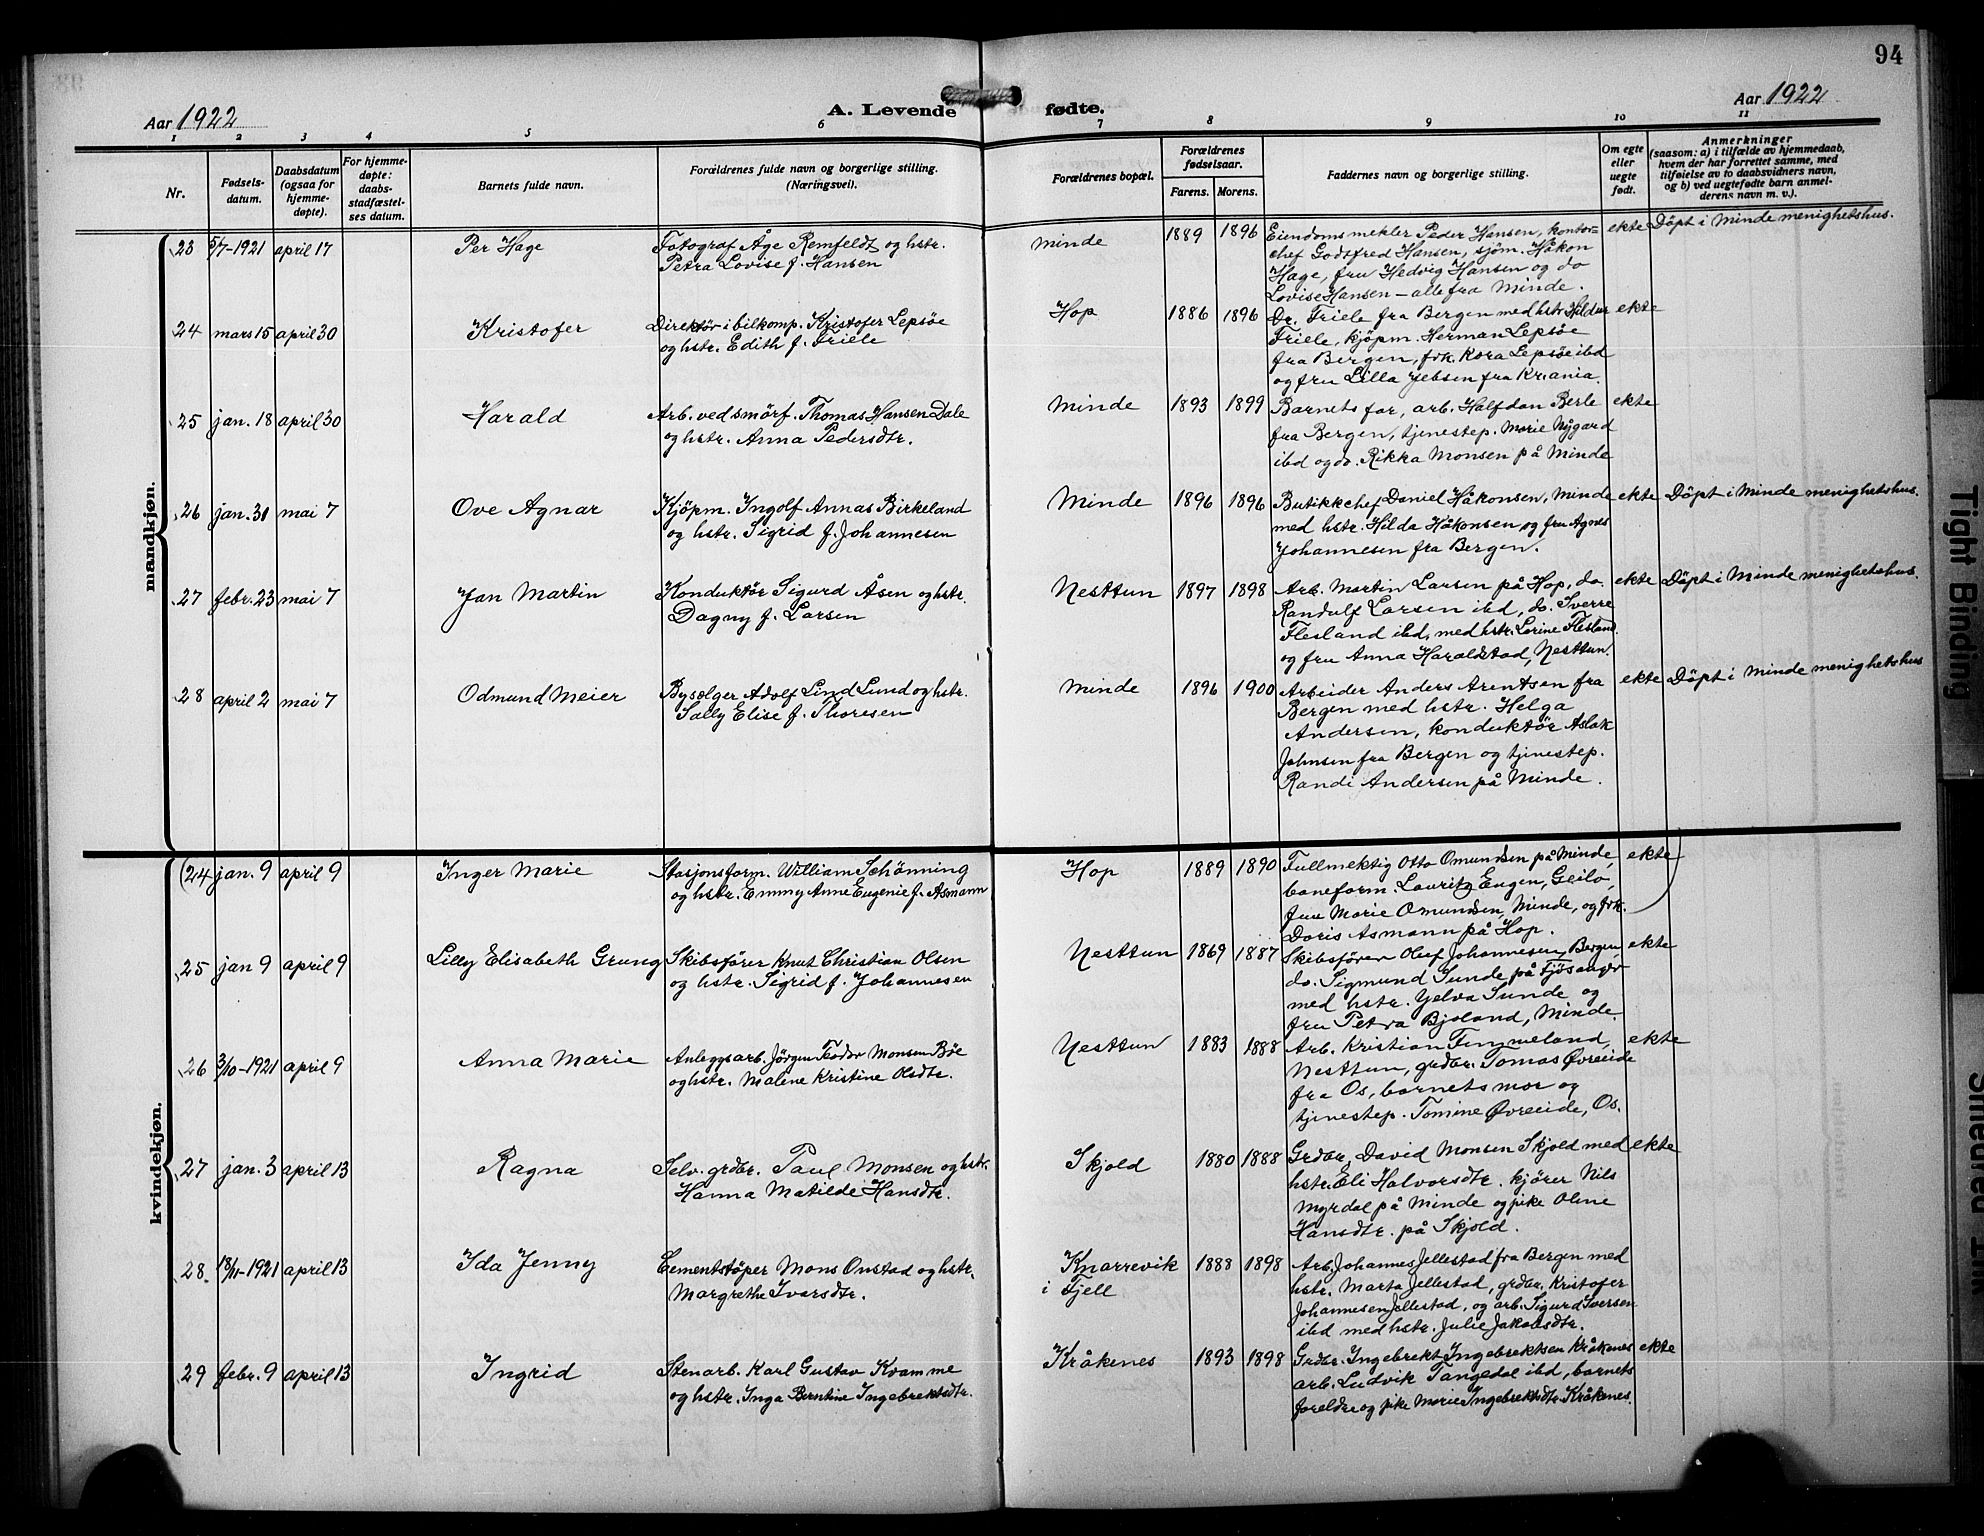 94
Aar 1922
A. Levende fødte.
Aar 1922
1 2 3 4 5 6 7 8 9 10 11
Nr.
Fødsels-
datum.
Daabsdatum
(ogsaa for
hjemme-
døpte).
For hjemme-
døpte:
daabs-
stadfæstel-
ses datum.
Barnets fulde navn.
Forældrenes fulde navn og borgerlige stilling.
(Næringsvei).
Forældrenes bopæl.
Forældrenes
fødselsaar.
Farens. Morens.
Faddernes navn og borgerlige stilling.
Om egte
eller
uegte
født.
Anmerkninger
(saasom: a) i tilfælde av hjemmedaab,
hvem der har forrettet samme, med
tilføielse av to daabsvidners navn,
og b) ved uegtefødte barn anmel-
derens navn m. v.).
mandkjøn.
23 5/7-1921 april 17 Per Hage Fotograf Åge Remfeldt og hstr.
Petra Lovise f. Hansen
Minde 1889 1896 Eiendomsmekler Peder Hansen, kontor-
chef Godtfred Hansen, sjøm. Håkon
Hage, fru Hedvig Hansen og do
Lovise Hansen - alle fra Minde.
ekte Döpt i Minde menighetshus.
24 mars 15 april 30 Kristofer Direktör i bilkomp. Kristofer Lepsöe
og hstr. Edith f. Friele
Hop 1886 1896 Dr. Friele fra Bergen med hstr. Hildur
Friele, kjöpm. Herman Lepsöe
fra Bergen, frk. Kora Lepsöe ibd
og fru Lilla Jebsen fra Kr.ania.
ekte
25 jan. 18 april 30 Harald Arb. ved smörf. Thomas Hansen Dale
og hstr. Anna Pedersdtr.
Minde 1893 1899 Barnets far, arb. Halfdan Berle
fra Bergen, tjenestep. Marie Nygard
ibd og do. Rikka Monsen på Minde
ekte
26 jan. 31 mai 7 Ove Agnar Kjöpm. Ingolf Annas Birkeland
og hstr. Sigrid f. Johannesen
Minde 1896 1896 Butikkchef Daniel Håkonsen, Minde
med hstr. Hilda Håkonsen og fru Agnes
Johannesen fra Bergen.
ekte Döpt i Minde menighetshus.
27 febr. 23 mai 7 Jan Martin Konduktör Sigurd Åsen og hstr.
Dagny f. Larsen
Nesttun 1897 1898 Arb. Martin Larsen på Hop, do
Randulf Larsen ibd, do. Sverre
Flesland ibd, med hstr. Lorine Flesland
og fru Anna Haraldstad, Nesttun.
ekte Döpt i Minde menighetshus.
28 april 2 mai 7 Odmund Meier Byselger Adolf Lind Lund og hstr.
Sally Elise f. Thoresen
Minde 1896 1900 Arbeider Anders Arentsen fra
Bergen med hstr. Helga
Andersen, konduktör Aslak
Johnsen fra Bergen og tjenestep.
Randi Andersen på Minde.
ekte Döpt i Minde menighetshus
kvindekjøn.
(24 jan. 9 april 9 Inger Marie Stasjonsform. William Schönning
og hstr. Emmy Anne Eugenie f. Asmann
Hop 1889 1890 Fullmektig Otto Omundsen på Minde,
baneform. Lauritz Eugen, Geilo,
fru Marie Omundsen, Minde, og frk.
Doris Asmann på Hop.
ekte
25 jan 9 april 9 Lilly Elisabeth Grung Skibsförer Knut Christian Olsen
og hstr. Sigrid f. Johannesen
Nesttun 1869 1887 Skibsförer Oluf Johannesen, Bergen,
do. Sigmund Sunde på Fjösanger
med hstr. Yelva Sunde og
fru Petra Bjoland, Minde.
ekte
26 3/10-1921 april 9 Anna Marie Anleggsarb. Jörgen Teodor Monsen Böe
og hstr. Malene Kristine Olsdtr.
Nesttun 1883 1888 Arb. Kristian Fimmeland,
Nesttun, grdbr. Tomas Øvreeide
fra Os, barnets mor og
tjenestep. Tomine Øvreeide, Os.
ekte
27 jan. 3 april 13 Ragna Selv. grdbr. Paul Monsen og hstr.
Hanna Matilde Hansdtr.
Skjold 1880 1888 Grdbr. David Monsen Skjold med
hstr. Eli Halvorsdtr. kjörer Nils
Myrdal på Minde og pike Oline
Hansdtr. på Skjold.
ekte
28. 18/11-1921 april 13 Ida Jenny Cementstöper Mons Onstad og hstr.
Margrethe Ivarsdtr.
Knarrevik
i Fjell
1888 1898 Arb. Johannes Jellestad fra Bergen med
hstr. Marta Jellestad, grdbr. Kristofer
Johannesen Jellestad, og arb. Sigurd Iversen
ibd med hstr. Julie Jakobsdtr.
29 febr. 9 april 13 Ingrid Stenarb. Karl Gustav Kvamme
og hstr. Inga Berntine Ingebrektsdtr.
Kråkenes 1893 1898 Grdbr. Ingebrekt Ingebrektsen Kråkenes
arb. Ludvik Tangedal ibd, barnets
foreldre og pike Marie Ingebrektsdtr. Kråkenes.
ekte
Tight Binding
Smeared Ink